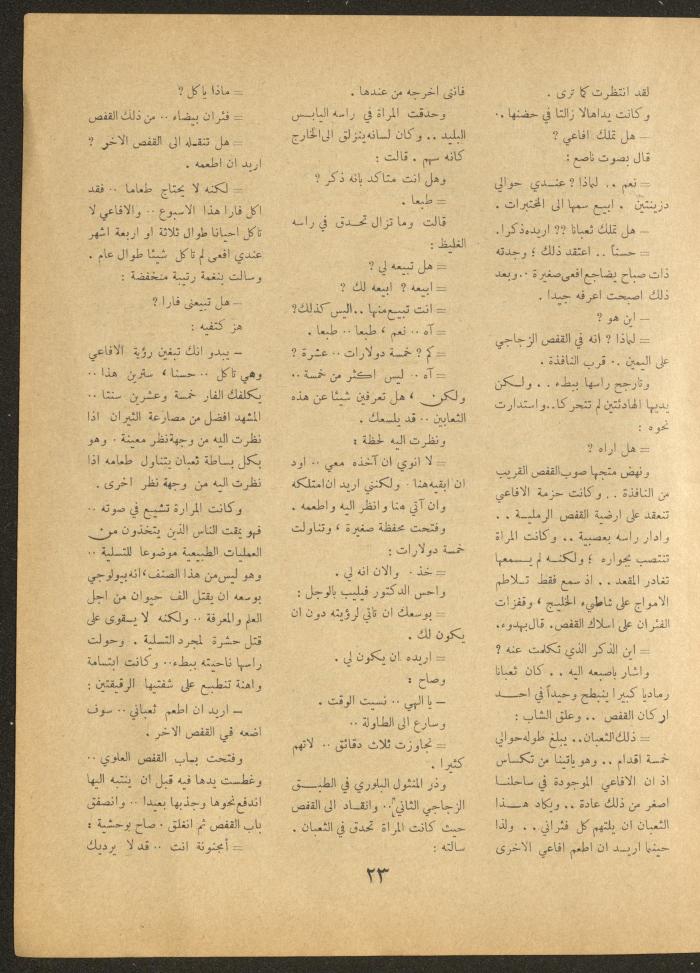 لقد انتظرت كما ترى .
وكانت يداهالا زالتا في حضنها .
— هل تملك افاعي ?
قال بصوت ناصع :
= نعم .. لماذا ? عنــدي حوالي
دزينتين . ابيع سمها الى المختبرات .
— هل تملك ثعبانا ?? اريده ذكرا .
= حسناً .. اعتقد ذلك ؛ وجدته
ذات صباح يضاجع افعى صغيرة .. وبعد
ذلك اصبحت اعرفه جيدا .
— اين هو ?
= لماذا ? انه في القفص الزجاجي
على اليمين .. قرب النافذة .
وتارجح راسها ببطء .. ولــكن
يديها الهادئتين لم تتحركا .. واستدارت
نحوه :
= هل اراه ?
ونهض متجها صوب القفص القريب
من النافذة .. وكانت حزمة الافاعي
تنعقد على ارضية القفص الرملية ..
وادار راسه بعصبية .. وكانت المراة
تنتصب بجواره ؛ ولكنــه لم يــسمعها
تغادر المقعد .. اذ سمع فقط تــلاطم
الامواج على شاطيء الخليج ، وقفزات
الفئران على اسلاك القفص . قال بهدوء .
= اين الذكر الذي تكلمت عنه ?
واشار باصبعه اليه .. كان ثعبانا
رماديا كبيرا ينبطح وحيداً في احــد
اركان القفص .. وعلق الشاب :
= ذلك الثعبان .. يبلغ طوله حوالي
خمسة اقدام .. وهو ياتينا من تكساس
اذ ان الافاعي الموجودة في ساحلنــا
اصغر من ذلك عادة .. ويكاد هــذا
الثعبان ان يلتهم كل فئراني .. ولذا
حينما اريــد ان اطعم افاعي الاخرى
فانني اخرجه من عندها .
وحدقت المراة في راسه اليابــس
البليد .. وكان لسانه ينزلق الى الخارج
كانه سهم . قالت :
وهل انت متاكد بانه ذكر ?
= طبعا .
قالت وما تزال تحــدق في راسه
الغليظ :
= هل تبيعه لي ?
= ابيعه ? ابيعه لك ?
= انت تبيــع منها .. اليس كذلك ?
= آه .. نعم ، طبعا .. طبعا .
= كم ? خمسة دولارات .. عشرة ?
= آه .. ليس اكثر من خمسة ..
ولكن ، هل تعرفين شيئا عن هذه
الثعابين .. قد يلسعك .
ونظرت اليه لحظة :
= لا انوي ان آخذه معي .. اود
ان ابقيه هنا . ولكنني اريد ان امتلكه
وان آتي هنا وانظر اليه واطعمه .
وفتحت محفظة صغيرة ، وتناولت
خمسة دولارات :
= خذ . والان انه لي .
واحس الدكتور فيليب بالوجل :
= بوسعك ان تاتي لرؤيته دون ان
يكون لك .
= اريده ان يكون لي .
وصاح :
— يا الهي .. نسيت الوقت .
وسارع الى الطاولة ..
= تجاوزت ثلاث دقائق .. لاتهم
كثيرا .
وذر المنثول البلوري في الطبــق
الزجاجي الثاني .. وانقــاد الى القفص
حيث كانت المراة تحدق في الثعبان .
سالته :
= ماذا ياكل ?
= فئران بيضاء .. من ذلك القفص
= هل تنقــله الى القفص الاخر ?
اريد ان اطعمه .
= لكنه لا يحتاج طعاما .. فقد
اكل فارا هذا الاسبوع .. والافاعي لا
تاكل احيانا طوال ثلاثة او اربعة اشهر
عندي افعى لم تاكل شيئا طوال عام .
وسالت بنغمة رتيبة منخفضة :
— هل تبيعني فارا ?
هز كتفيه :
— يبدو انك تبغين رؤية الافاعي
وهي تاكل .. حسنا ، سترين هذا ..
يكلفك الفار خمسة وعشرين سنتا ..
المشهد افضل من مصارعة الثيران اذا
نظرت اليه من وجهة نظر معينة . وهو
بكل بساطة ثعبان يتناول طعامه اذا
نظرت اليه من وجهة نظر اخرى .
وكانت المرارة تشيع في صوته ..
فهو يمقت الناس الذين يتخذون من
العمليات الطبيعية موضوعا للتسلية ..
وهو ليس من هذا الصنف ، انه بيولوجي
بوسعه ان يقتل الف حيوان من اجل
العلم والمعرفة .. ولكنه لا يــقوى على
قتل حشرة لمجرد التسلية . وحولت
راسها ناحيته ببطء .. وكانت ابتسامة
واهنة تنطبــع على شفتيها الرقيقتين :
— اريد ان اطعم ثعباني .. سوف
اضعه في القفص الاخر .
وفتحت بــاب القفص العلوي ..
وغطست يدها فيه قبل ان ينتبه اليها
اندفع نحوها وجذبها بعيدا .. وانصفق
باب القفص ثم انغلق . صاح بوحشية :
= أمجنونة انت .. قد لا يرديك
٢٣